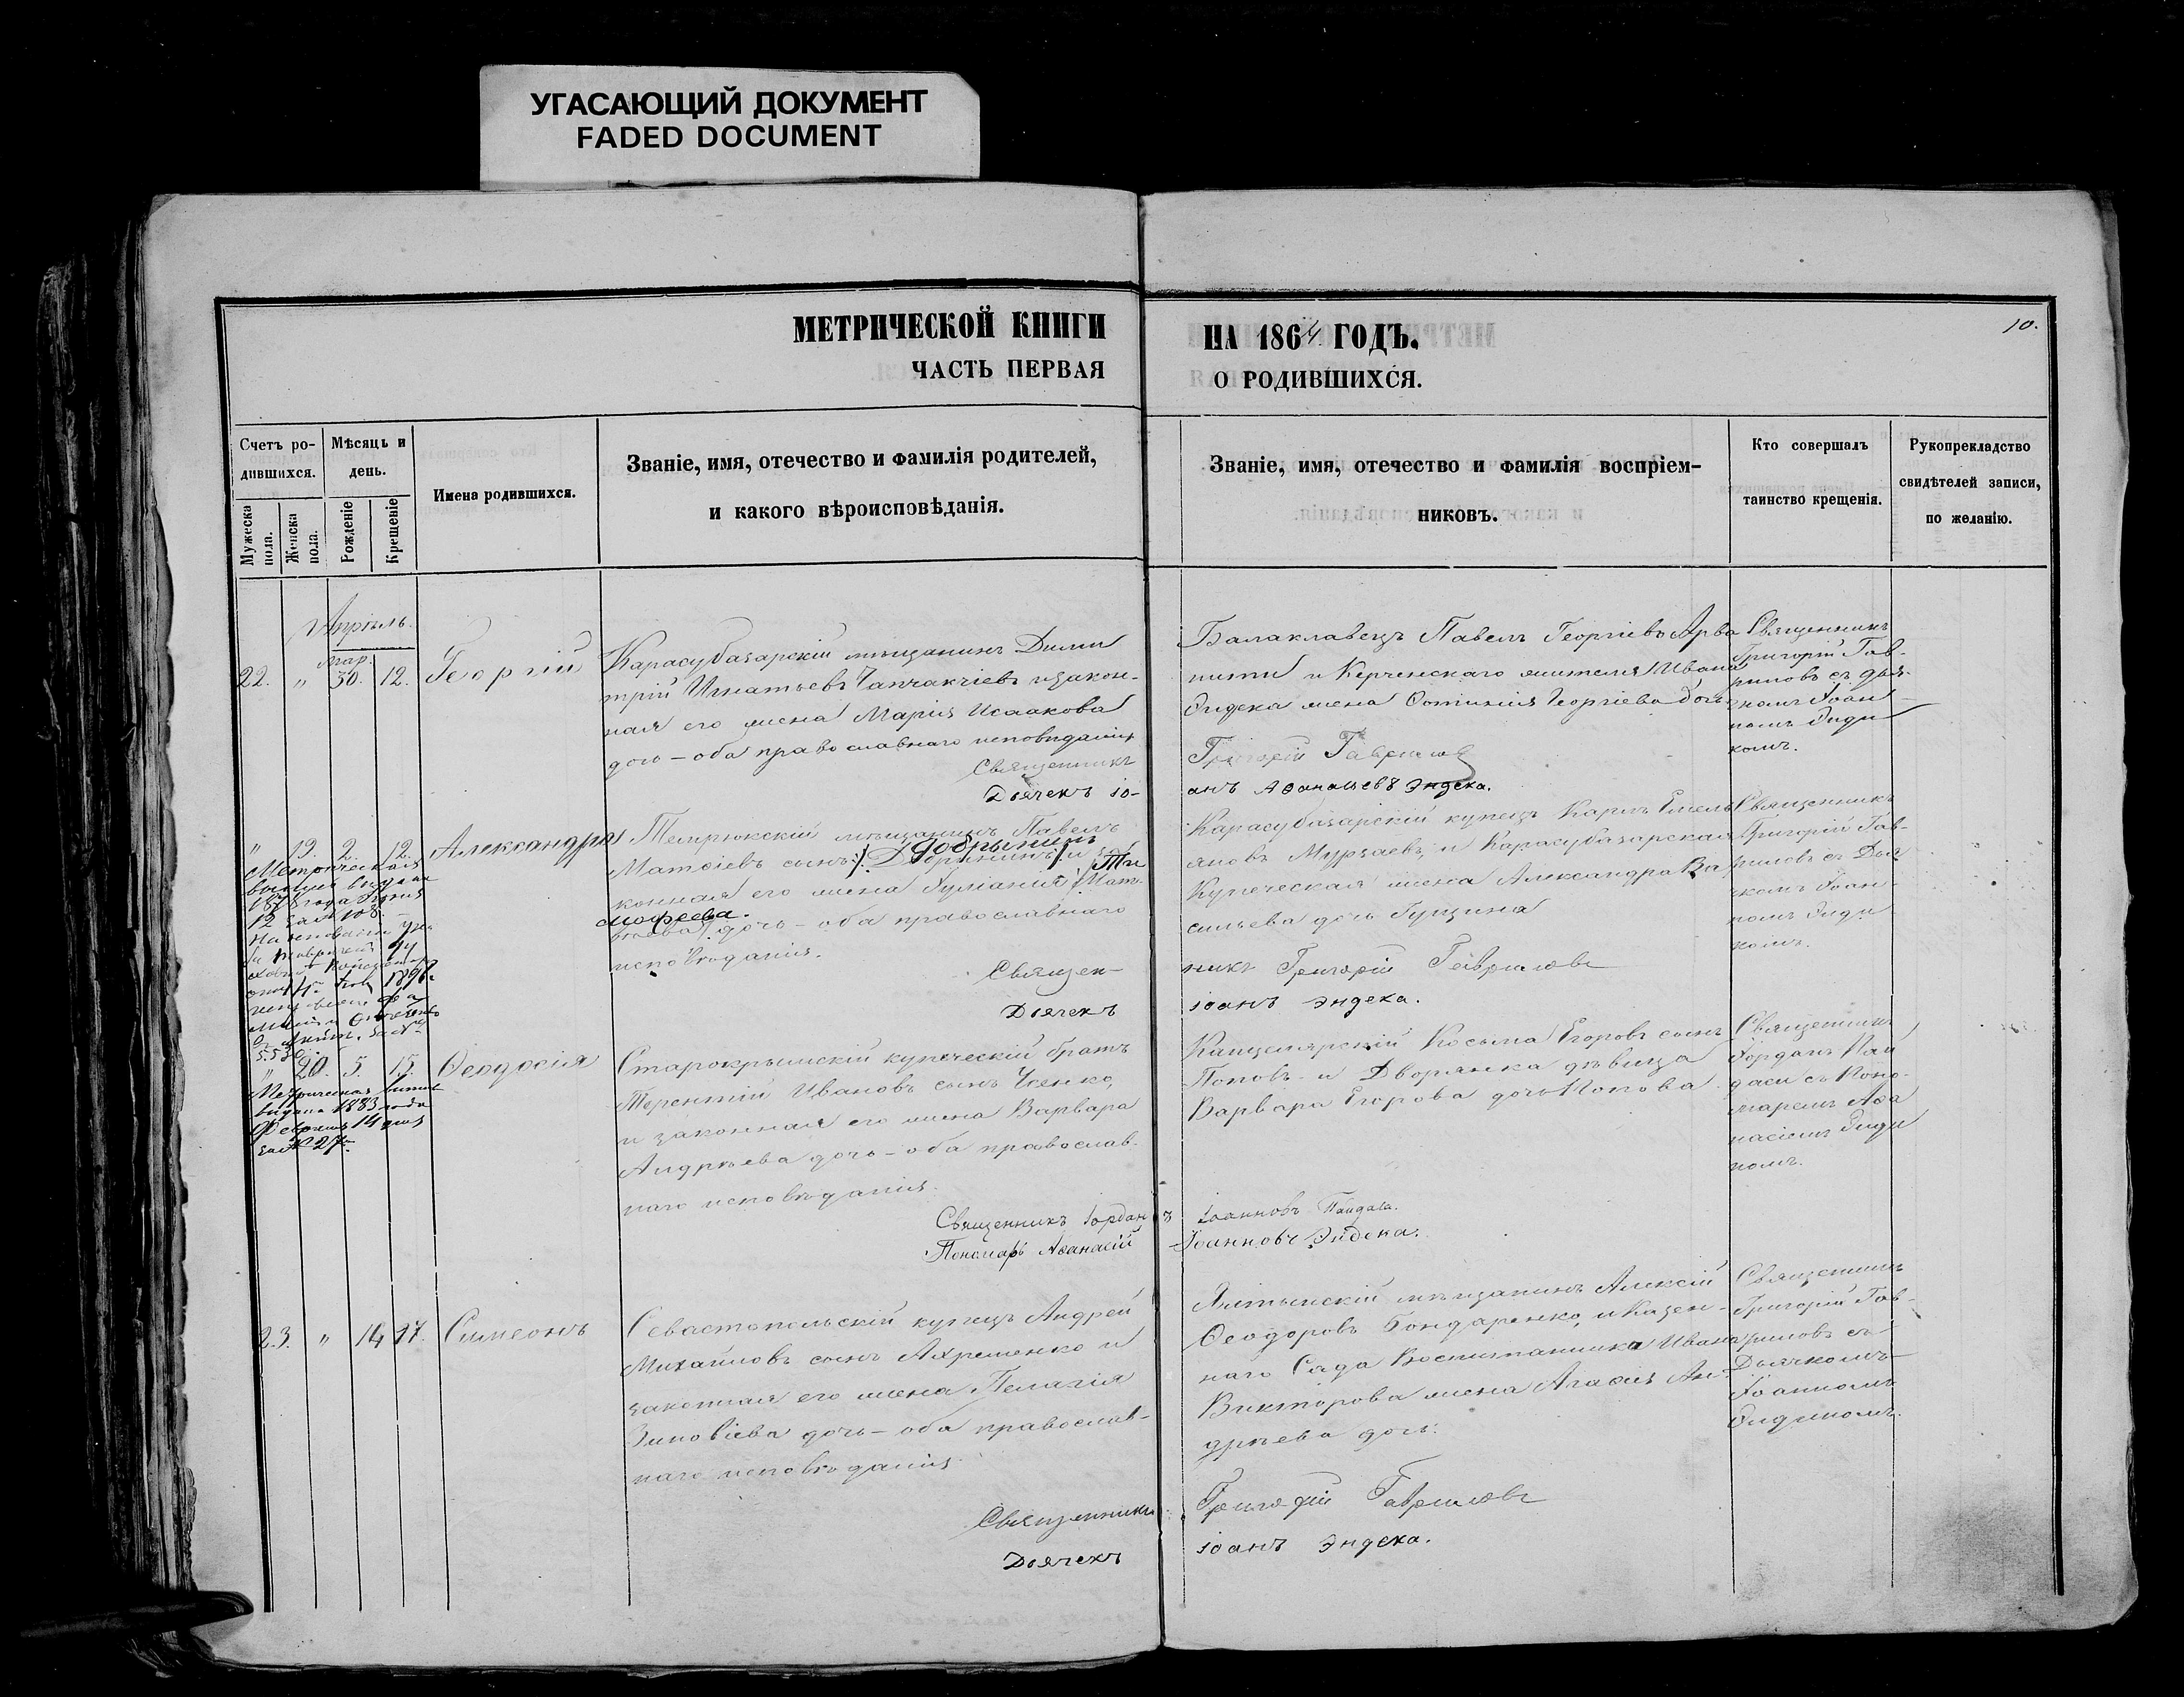 УГАСАЮЩИЙ ДОКУМЕНТ
FADED DOCUMENT
МЕТРИЧЕСКОЙ КНИГИ
ЧАСТЬ ПЕРВАЯ
НА 1864 ГОДЪ.
О РОДИВШИХСЯ.
10.
Счетъ ро-
дившихся.
Мужеска
пола.
Женска
пола.
Мѣсяць и
день.
Рожденіе
Крещеніе
Имена родившихся.
Званіе, имя, отечество и фамилія родителей,
и какого вѣроисповѣданія.
Званіе, имя, отечество и фамилія воспріем-
никовъ.
Кто совершалъ
таинство крещенія.
Рукопрекладство
свидѣтелей записи,
по желанію.
Апрѣль.
мар.
22. " 30. 12. Георгій
Карасубазарскій мѣщанинъ Дими
трій Игнатьевъ Чапчакчіевъ и закон-
ная его жена Марія Исаакова
дочь – оба православнаго исповѣданія
Священникъ
Дьячекъ Іо-
Балаклавецъ Павелъ Георгіевъ Арва
нити и Керченскаго жителя Ивана
Эндека жена Фотинія Георгіева дочь
Григорій Гавриловъ
анъ Афанасьевъ Эндека.
Священникъ
Григорій Гав-
риловъ съ дья-
комъ Іоан
номъ Энде
комъ.
" 19. 2. 12. Александра
Метрическая
выпись выдана
187 года
12 за № 108.
1898
530
Темрюкскій мѣщанинъ Павелъ
Добрынинъ
Матвіевъ сынъ и за
конная его жена Іуліанія Мат- Ти
мофеева.
вѣева дочь – оба православнаго
исповѣданія.
Священ-
Дьячекъ
Карасубазарскій купецъ Карпъ Емель
яновъ Мурзаевъ, и Карасубазарская
Купеческая жена Александра Ва
сильева дочь Гущина
никъ Григорій Гавриловъ
Іоанъ Эндека.
Священникъ
Григорій Гав-
риловъ съ Дья
чкомъ Іоан-
номъ Энде
комъ.
" 20. 5. 15. Ѳеодосія
Метрическая выпись
выдана 1883 года
Февраля 14 дня
за № 27.
Старокрымскій купеческій братъ
Терентій Ивановъ сынъ Ченко,
и законная его жена Варвара
Андрѣева дочь – оба православ-
наго исповѣданія.
Священникъ Іордан
Пономарь Афанасій
Канцелярскій Косьма Егоровъ сынъ
Поповъ – и Дворянка дѣвица
Варвара Егорова дочь Попова
ъ Іоанновъ Пандаза.
Іоанновъ Эндека.
Священникъ
Іорданъ Пан
даси съ Поно-
маремъ Афа
насіемъ Энде
комъ.
23. " 14 17. Симеонъ
Севастопольскій купецъ Андрей
Михайловъ сынъ Ахременко и
законная его жена Пелагія
Зиновіева дочь – оба православ-
наго исповѣданія
Священникъ
Дьячекъ
Ялтынскій мѣщанинъ Алексій
Ѳеодоровъ Бондаренко, и Казен-
наго Сада Воспитанника Ивана
Викторова жена Агафія Ан-
дрѣева дочь.
Григорій Гавриловъ
Іоанъ Эндека.
Священникъ
Григорій Гав-
риловъ съ
Дьячкомъ
Іоанномъ
Эндекомъ.